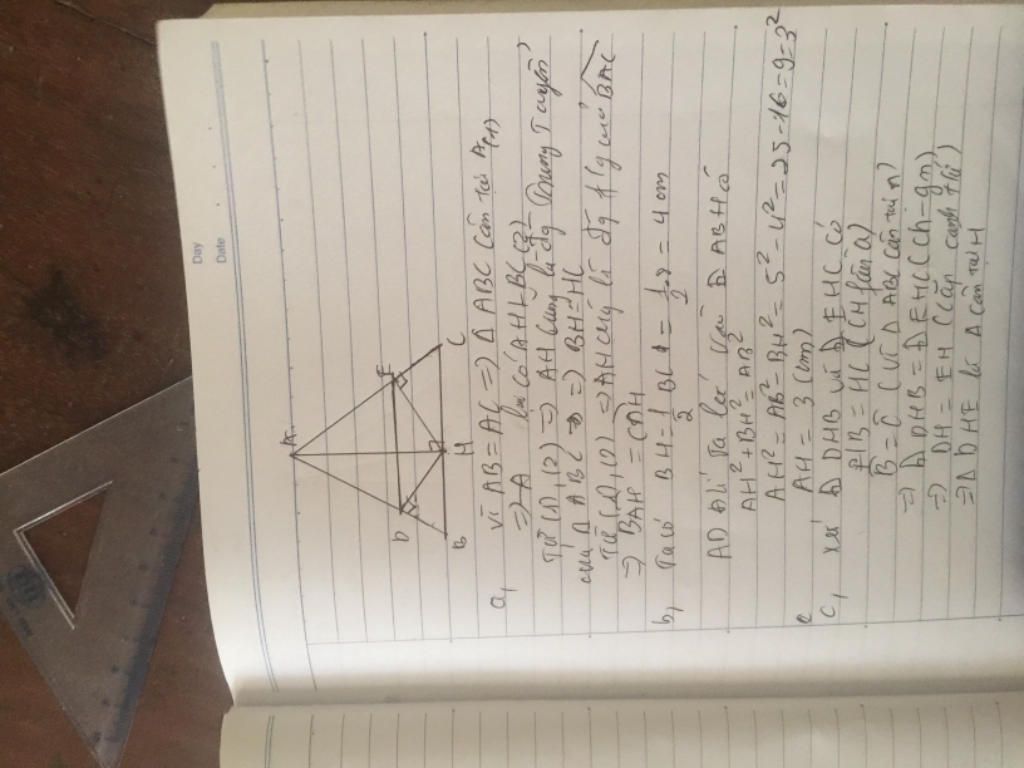 Day
Date
A
D
E
B
H
C
a, vì AB = AC => Δ ABC cân tại A (1)
=> A lại có AH ⊥ BC (2)
Từ (1), (2) => AH cũng là đg Trung Tuyến
của Δ ABC => BH = HC
Từ (1), (2) => AH cũng là đg f/g của BAC
=> BAH = CAH
b, Ta có BH = 1/2 BC = 1/2 . = 4 cm
AD ĐLí Ta có Δ ABH có
AH² + BH² = AB²
AH² = AB² - BH² = 5² - 4² = 25 - 16 = 9 = 3²
AH = 3 (cm)
c, xét Δ DHB và Δ EHC có
HB = HC (CH fần a)
B = C (vì Δ ABC cân tại A)
=> Δ DHB = Δ EHC (ch-gn)
=> DH = EH (cặp cạnh)
=> Δ DHE là Δ cân tại H